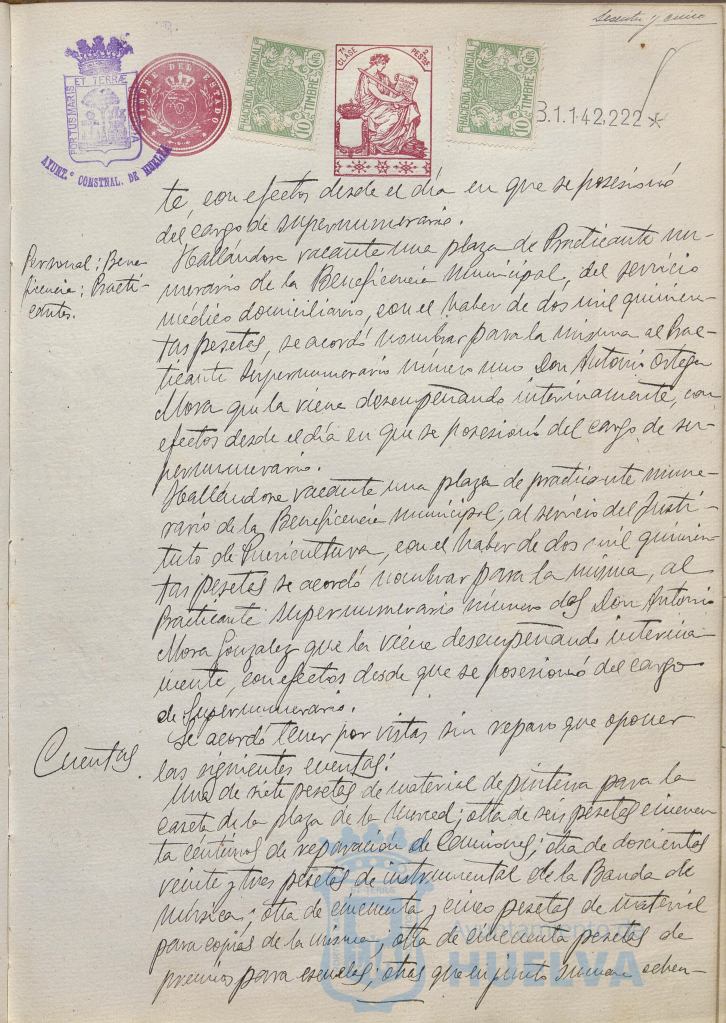 Sesenta y cinco
PORTUS MARIS ET TERRÆ CUSTODIA
AYUNT.º CONSTNAL. DE HUELVA
TIMBRE DEL ESTADO
HACIENDA PROVINCIAL
10 Cts
TIMBRE
7ª CLASE
2 PESETAS
HACIENDA PROVINCIAL
10 Cts
TIMBRE
B.1.142,222*
te, con efectos desde el día en que se posesionó
del cargo de supernumerario.
Personal: Bene
ficencia: Practi
cantes.
Hallándose vacante una plaza de Practicante nu-
merario de la Beneficencia Municipal, del servicio
médico domiciliario, con el haber de dos mil quinien-
tas pesetas, se acordó nombrar para la misma al Prac-
ticante Supernumerario numero uno Don Antonio Ortega
Mora que la viene desempeñando interinamente, con
efectos desde el día en que se posesionó del cargo de su-
pernumerario.
Hallándose vacante una plaza de practicante nume-
rario de la Beneficencia Municipal, al servicio del Insti-
tuto de Puericultura, con el haber de dos mil quinien-
tas pesetas se acordó nombrar para la misma, al
Practicante supernumerario número dos Don Antonio
Mora Gonzalez que la viene desempeñando interina
mente, con efectos desde que se posesionó del cargo
de Supernumerario.
Cuentas.
Se acordó tener por vistas sin reparo que oponer
las siguientes cuentas:
Una de siete pesetas de material de pintura para la
caseta de la plaza de la Merced; otra de seis pesetas cincuen
ta céntimos de reparación de Camiones; otra de doscientas
veinte y tres pesetas de instrumental de la Banda de
música; otra de cincuenta y cinco pesetas de material
para copias de la misma; otra de cincuenta pesetas de
premios para escuelas; otras que en junto suman ochen-
Ayuntamiento de
HUELVA